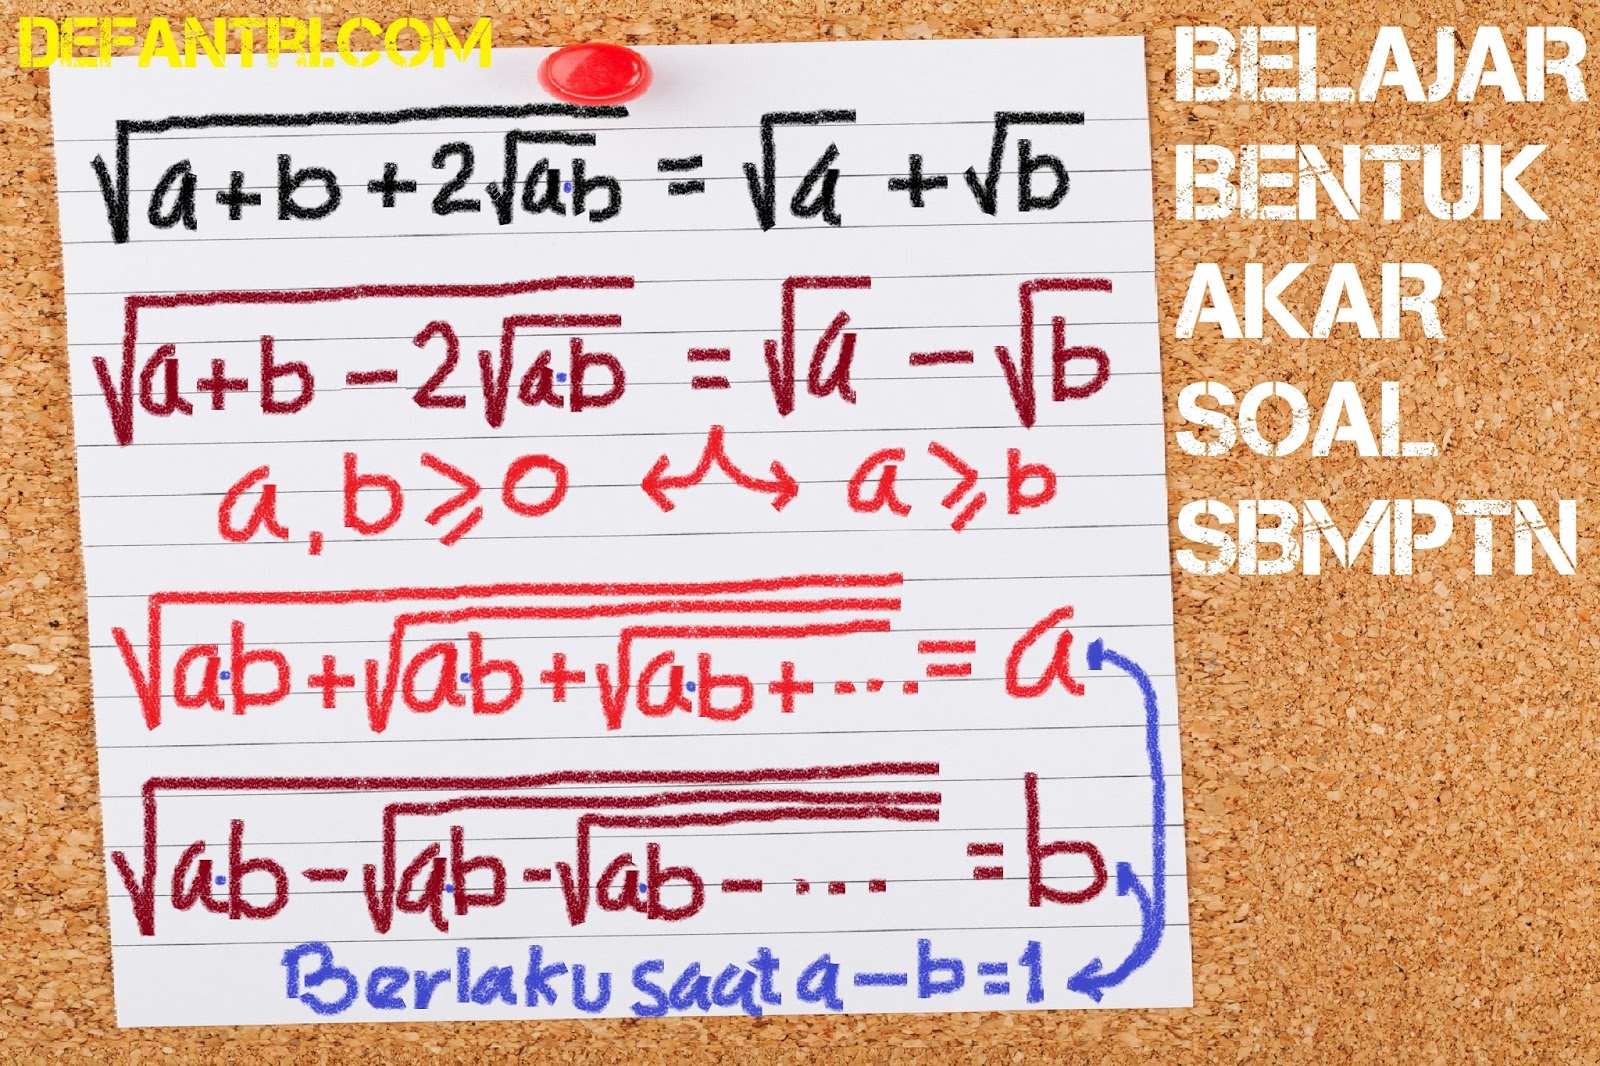 DEFANTRI.COM
√(a+b+2√(a·b)) = √a + √b
√(a+b-2√(a·b)) = √a - √b
a, b ≥ 0 ↔ a ≥ b
√(a·b+√(a·b+√(a·b+...))) = a
√(a·b-√(a·b-√(a·b-...))) = b
Berlaku saat a-b=1
BELAJAR
BENTUK
AKAR
SOAL
SBMPTN